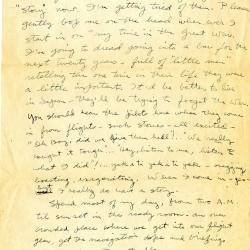 "story" now. I'm getting tired of them. Please
gently bop me on the head when ever I
start in on "my time in the Great War."
I'm going to dread going into a bar for the
next twenty years - full of little men
retelling the one time in their life they were
a little important. It'd be better to live
in — they'll be trying to forget the War.
You should hear the pilots here when they come
in from flights - such stories - all excited -
"Oh Boy, did we give them hell?!" "We really
caught it tough..." "Hey, listen to me, listen to
what I did!... yak a ta yak a ta yak - bragging
boasting, exaggerating. When I come in - good
but I really do have a story.
Spend most of my day, from two A.M.
til sun set in the ready room - an over
crowded place where we get into our flight
gear, get the navigation dope and briefing.